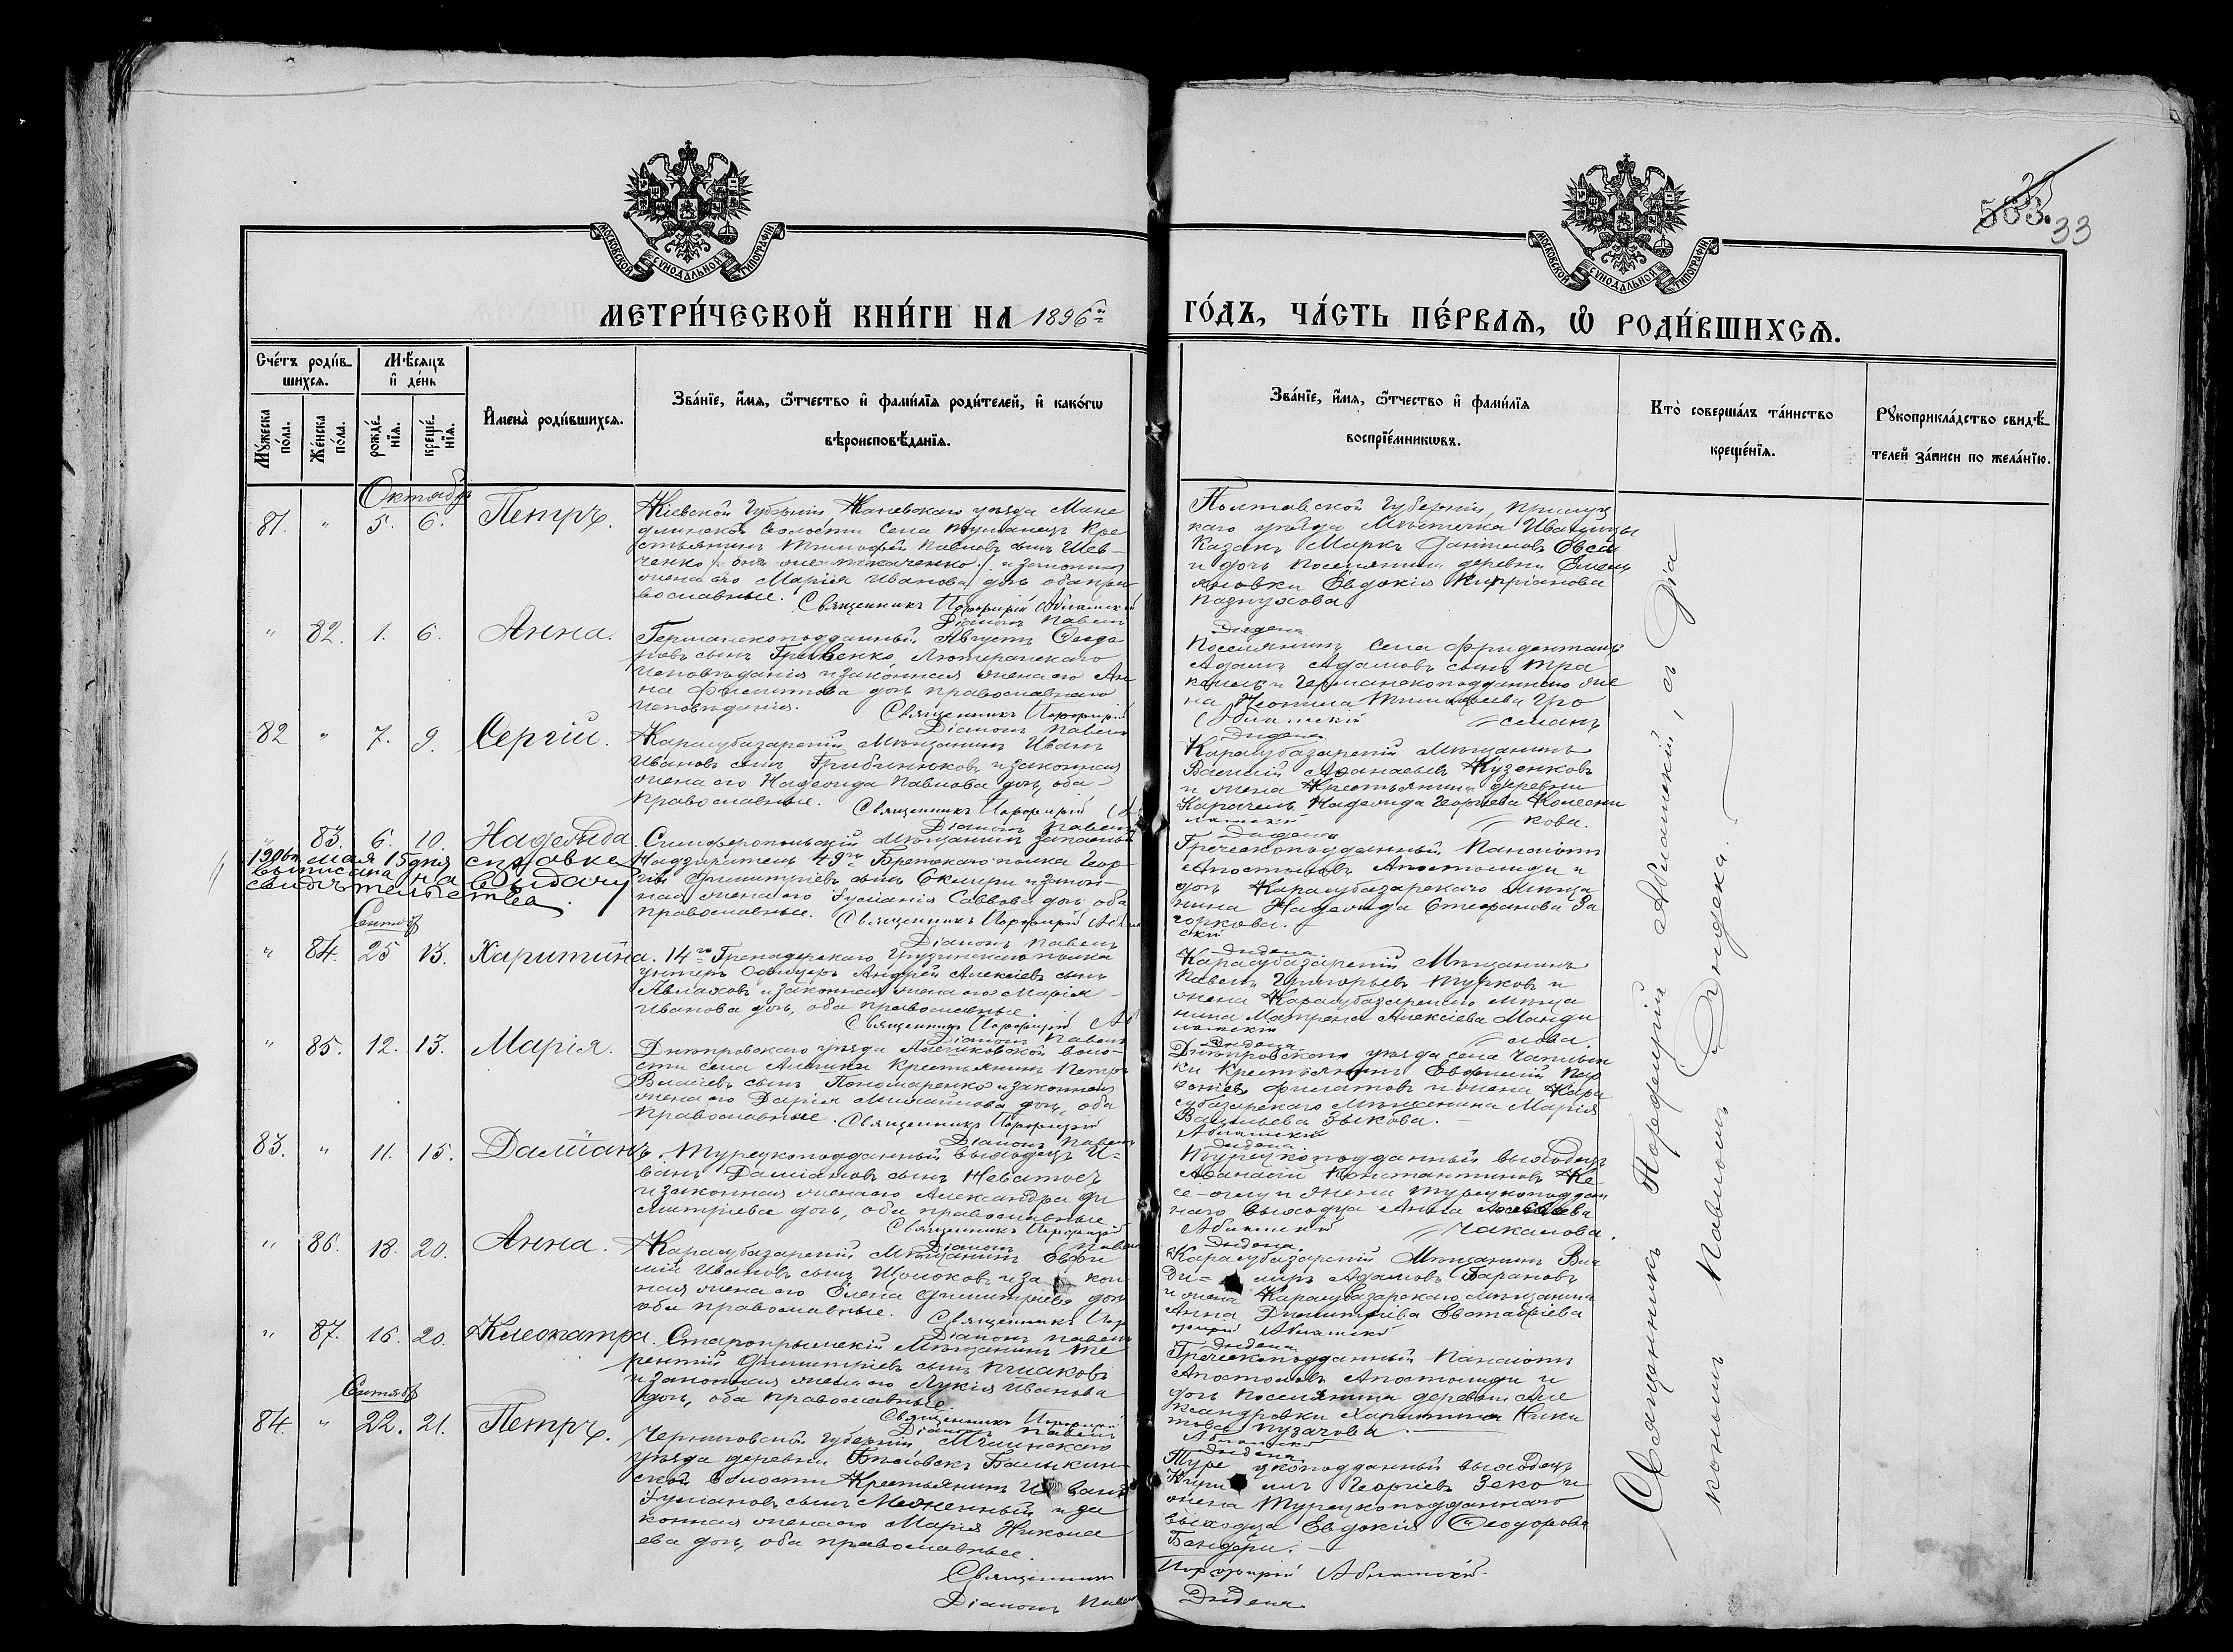 МОСКОВСКОЙ СУНОДАЛЬНОЙ ТИПОГРАФІИ
МОСКОВСКОЙ СУНОДАЛЬНОЙ ТИПОГРАФІИ
33
МЕТРИ́ЧЕСКОЙ КНИ́ГИ НА 1896й
ГО́ДЪ, ЧА́СТЬ ПЕ́РВАѦ, Ѽ РОДИ́ВШИХСѦ.
Сче́тъ роди́в-
шихсѧ.
Мꙋжеска по́ла.
Же́нска по́ла.
Мѣ́сѧцъ
и҆ де́нь
рожде́-
нїѧ.
креще́-
нїѧ.
И҆мена̀ роди́вшихсѧ.
Зва́нїе, и҆́мѧ, ѻ҆́тчество и҆ фами́лїѧ роди́телей, и҆ како́гѡ
вѣроисповѣ́данїѧ.
Зва́нїе, и҆́мѧ, ѻ҆́тчество и҆ фами́лїѧ
воспрїе́мникѡвъ.
Кто̀ соверша́лъ та́инство
креще́нїѧ.
Рꙋкоприкла́дство свидѣ́-
телей за́писи по жела́нїю.
Октябр
81. " 5. 6. Петръ.
Кіевской Губерніи Каневскаго уѣзда
волости села Кре
стьянинъ Тимофей Павловъ сынъ Шев-
ченко и законная
жена его Марія Иванова дочь оба пра
вославные. Священникъ Порфирій Абламскій
Діаконъ Павелъ
Дидена
Полтавской Губерніи, Прилуц
каго уѣзда Мѣстечка Иваницы
Казакъ Маркъ
и дочь поселянина деревни
Евдокія Кипріанова
" 82. 1. 6. Анна.
Германскоподданный Августъ Ѳеодо
ровъ сынъ Гривенко Лютеранскаго
исповѣданія и законная жена его Ан
на Филиппова дочь православнаго
исповѣданія. Священникъ Порфирій
Абламскій
Діаконъ Павелъ
Дидена
Поселянинъ села Фриденталь
Адамъ Адамовъ сынъ
и Германскоподданнаго же
на
82 " 7. 9. Сергій.
Карасубазарскій Мѣщанинъ Иванъ
Ивановъ сынъ Грибинюковъ и законная
жена его Надежда Павлова дочь, оба
православные. Священникъ Порфирій Аб
ламскій
Діаконъ Павелъ
Дидена
Карасубазарскій Мѣщанинъ
Василій Аѳанасьевъ Кузенковъ
и жена Крестьянина деревни
Карачель Надежда Георгіева Колесни
кова.
" 83. 6. 10. Надежда.
1906г. мая 15 дня справка
выписана на выдачу
свидѣтельства.
Симферопольскій Мѣщанинъ запасный
Надзиратель 49го Брестскаго полка Геор
гій Димитріевъ сынъ и закон-
ная жена его Іуліанія Саввова дочь оба
православные. Священникъ Порфирій Аблам
скій
Діаконъ Павелъ
Дидена
Греческоподданный Панаіотъ
Апостоловъ Апостолиди и
дочь Карасубазарскаго мѣща
нина Надежда Стефанова За
горкова.
Сентябр
" 84. 25 13. Харитина.
14го Гренадерскаго Грузинскаго полка
унтеръ Офицеръ Андрей Алексіевъ сынъ
Авлаховъ и законная жена его Марія
Иванова дочь, оба православные.
Священникъ Порфирій Аб
ламскій
Діаконъ Павелъ
Дидена
Карасубазарскій Мѣщанинъ
Павелъ Григорьевъ Турковъ и
жена Карасубазарскаго мѣща
нина Матрена Алексіева Манди
лова.
" 85. 12. 13. Марія.
Днѣпровскаго уѣзда Алешковской воло-
сти села Алешки Крестьянинъ Петръ
Власіевъ сынъ Пономаренко и законная
жена его Дарія Михаилова дочь, оба
православные. Священникъ Порфирій
Абламскій
Діаконъ Павелъ
Дидена
Днѣпровскаго уѣзда села Чаплын
ки Крестьянинъ Евфимій
Филатовъ и жена Кара
субазарскаго Мѣщанина Марія
Васильева Зыкова.
83. " 11. 15. Даміанъ.
Турецкоподданный выходецъ И-
ванъ Даміановъ сынъ
и законная жена его Александра Ди
митріева дочь, оба православные
Священникъ Порфирій
Абламскій
Діаконъ Павелъ
Дидена.
Турецкоподданный выходецъ
Аѳанасій Константиновъ Ке
се-оглу и жена турецкоподдан
наго выходца Анна
Чакалова.
" 86. 18. 20. Анна.
Карасубазарскій Мѣщанинъ Евфи
мій Ивановъ сынъ Щолоковъ и за кон
ная жена его Елена Димитріева дочь
оба православные. Священникъ Пор
фирій Абламскій
Діаконъ Павелъ
Дидена
Карасубазарскій Мѣщанинъ Вла
ди- миръ Адамовъ Барановъ
и жена Карасубазарскаго мѣщанина
Анна Димитріева Евстафіева
" 87. 16. 20. Клеопатра.
Старокрымскій Мѣщанинъ Те
рентій Димитріевъ сынъ
и законная жена его Лукія Иванова
дочь, оба православные.
Священникъ Порфирій
Абламскій
Діаконъ Павелъ
Дидена
Греческоподданный Панаіотъ
Апостоловъ Апостолиди и
дочь поселянина деревни Але
ксандровки Харитина Ники
това Пузачова.
Сентябр
84. " 22. 21. Петръ.
Черниговской Губерніи Мглинскаго
уѣзда деревни
волости Крестьянинъ И ванъ
Іуліановъ сынъ и за
конная жена его Марія Николае
ева дочь, оба православные.
Священникъ Порфирій Абламскій
Діаконъ Павелъ Дидена
Туре цкоподданный выходецъ
Кири лъ Георгіевъ Зеко и
жена турецкоподданнаго
выходца Евдокія Ѳеодорова
Бандери.
Священникъ Порфирій Абламскій, съ Діа
кономъ Павломъ Диндека.